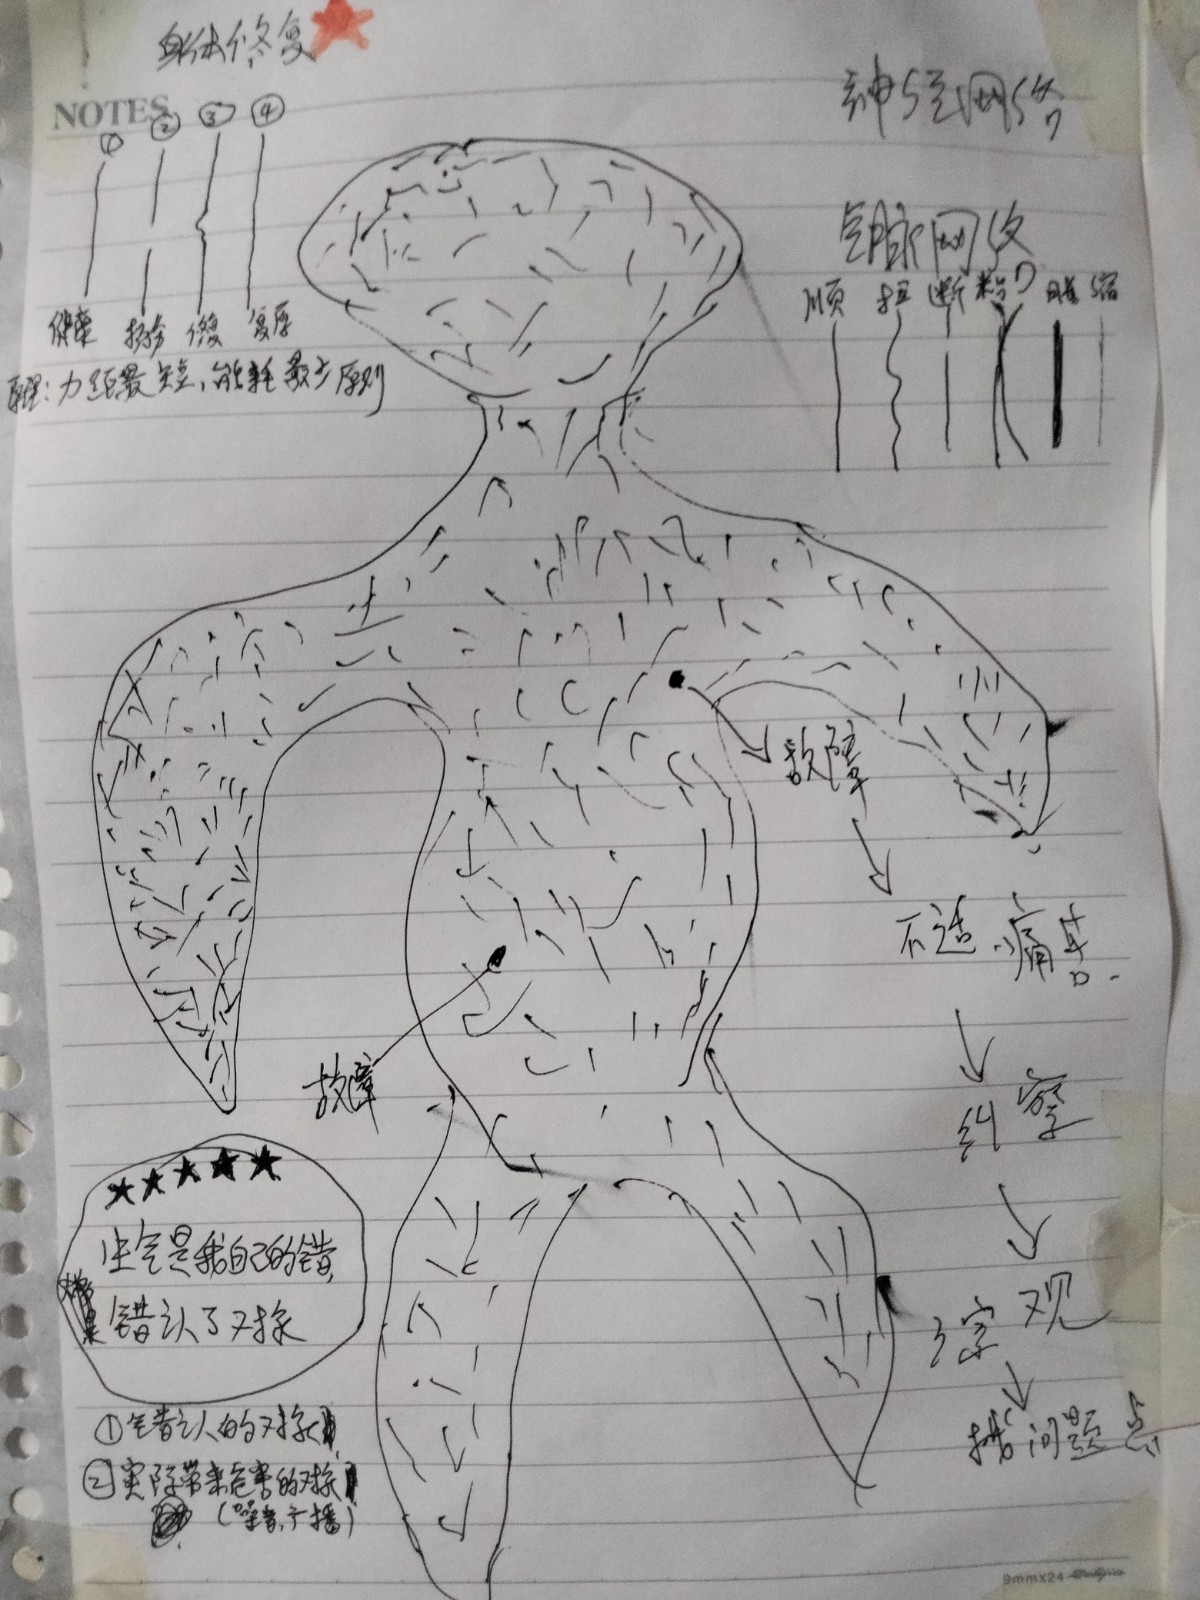 身体修复
NOTES
① ② ③ ④
健康 损伤 修复 复原
原理:力距最短,能耗最少原则
神经网络
气脉网络
顺 扭 断 粘 膨 缩
故障
不适、痛苦.
纠察
观
问题点
故障
★★★★★
生气是我自己的错,
错认了对象
①错认的对象
②实际带来危害的对象
(噪音,广播)
9mm×24